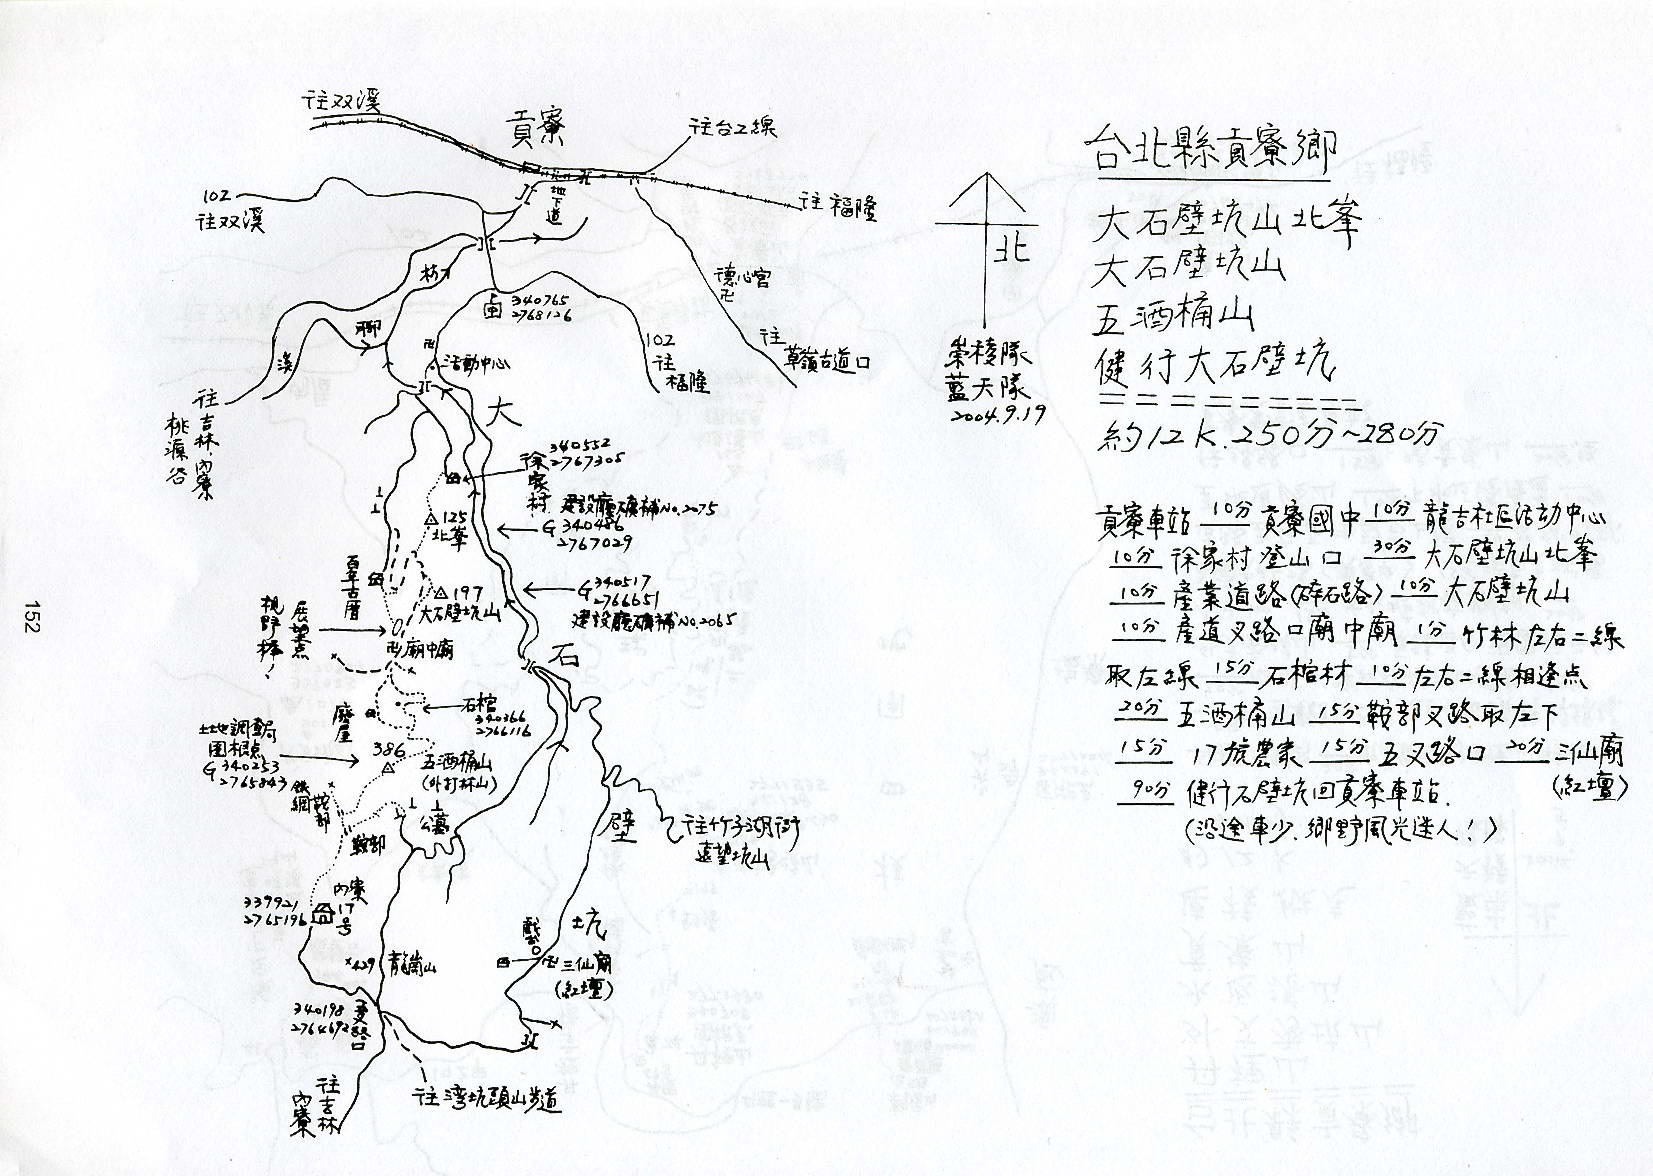 台北縣貢寮鄉
大石壁坑山北峯
大石壁坑山
五酒桶山
健行大石壁坑
約12K.250分~280分
貢寮車站 10分 貢寮國中 10分 龍吉社區活動中心
10分 徐家村登山口 30分 大石壁坑山北峯
10分 產業道路(碎石路) 10分 大石壁坑山
10分 產道叉路口廟中廟 1分 竹林左右二線
取左線 15分 石棺材 10分 左右二線相逢点
20分 五酒桶山 15分 鞍部叉路取左下
15分 17號農家 15分 五叉路口 20分 三仙廟
(紅壇)
90分 健行石壁坑回貢寮車站.
(沿途車少.鄉野風光迷人!)
北
崇稜隊
藍天隊
2004.9.19
往双溪
貢寮
往台2線
102
往双溪
地下道
往福隆
枋
德心宮
340765
2768126
聊
溪
活動中心
102
往福隆
往
草嶺古道口
往吉林.內寮
桃源谷
大
340552
2767305
徐家村
建設廳礦補No.2075
G 340486
2767029
125
北峯
百年古厝
G 340517
2766651
建設廳礦補No.2065
197
大石壁坑山
展望点
視野棒!
廟中廟
石
石棺
340366
2766116
廢屋
土地調查局
圖根点
G 340253
2765843
386
五酒桶山
(外打林山)
鐵網
鞍部
公墓
鞍部
壁
往竹子湖街
遠望坑山
內寮
17号
339921
2765196
坑
戲台
429
三仙廟
(紅壇)
340198
往吉林
內寮
往湾坑頭山步道
152